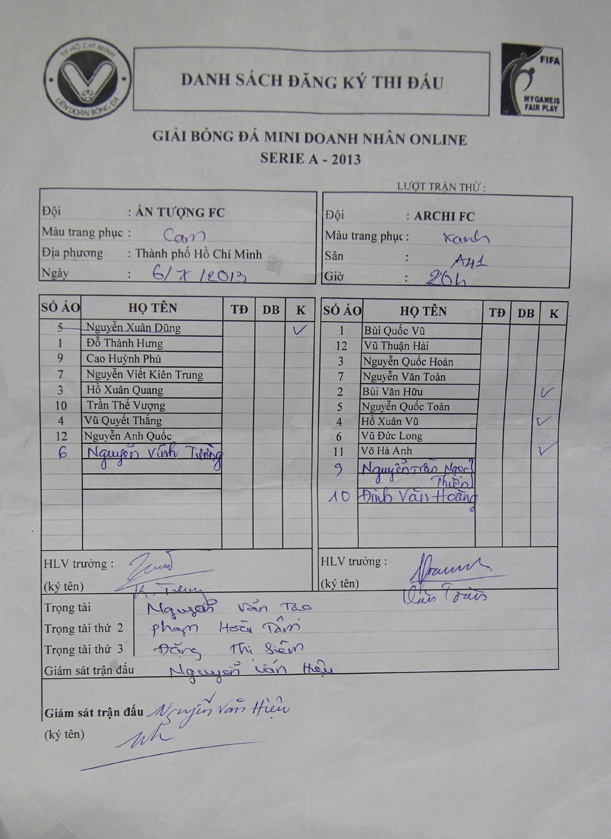 TP HỒ CHÍ MINH
LIÊN ĐOÀN BÓNG ĐÁ
DANH SÁCH ĐĂNG KÝ THI ĐẤU
FIFA
MY GAME IS
FAIR PLAY
GIẢI BÓNG ĐÁ MINI DOANH NHÂN ONLINE
SERIE A - 2013
LƯỢT TRẬN THỨ :
Đội : ẤN TƯỢNG FC
Màu trang phục : Cam
Địa phương : Thành phố Hồ Chí Minh
Ngày 6/X/2013
Đội : ARCHI FC
Màu trang phục : Xanh
Sân : A41
Giờ : 20h
SỐ ÁO HỌ TÊN TĐ DB K
5 Nguyễn Xuân Dũng ✓
1 Đỗ Thành Hưng
9 Cao Huỳnh Phú
7 Nguyễn Viết Kiên Trung
3 Hồ Xuân Quang
10 Trần Thế Vượng
4 Vũ Quyết Thắng
12 Nguyễn Anh Quốc
6 Nguyễn Vĩnh Tường
SỐ ÁO HỌ TÊN TĐ DB K
1 Bùi Quốc Vũ
12 Vũ Thuận Hải
3 Nguyễn Quốc Hoàn
7 Nguyễn Văn Toàn
2 Bùi Văn Hữu ✓
5 Nguyễn Quốc Toản
4 Hồ Xuân Vũ ✓
6 Vũ Đức Long
11 Võ Hà Anh ✓
9 Nguyễn Trần Ngọc
Thiện
10 Đinh Văn Hoàng
HLV trưởng :
(ký tên)
HLV trưởng :
(ký tên) Văn Toàn
Trọng tài Nguyễn Văn Tạo
Trọng tài thứ 2 Phạm Hoài Tâm
Trọng tài thứ 3 Đặng Thị Siêm
Giám sát trận đấu Nguyễn Văn Hiệu
Giám sát trận đấu Nguyễn Văn Hiệu
(ký tên)